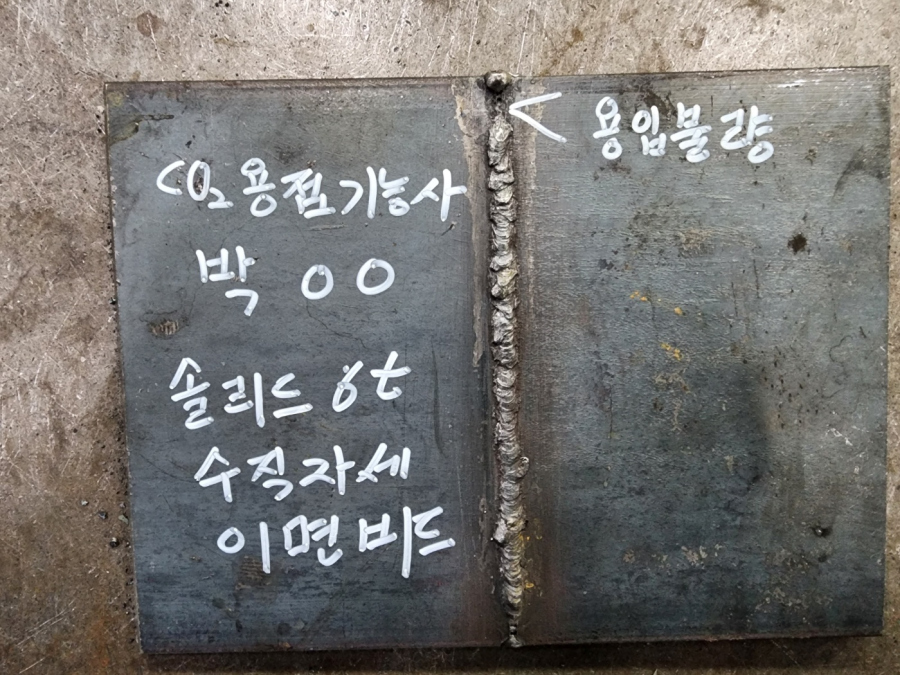 CO₂용접기능사
박 OO
솔리드 6t
수직자세
이면비드
< 용입불량